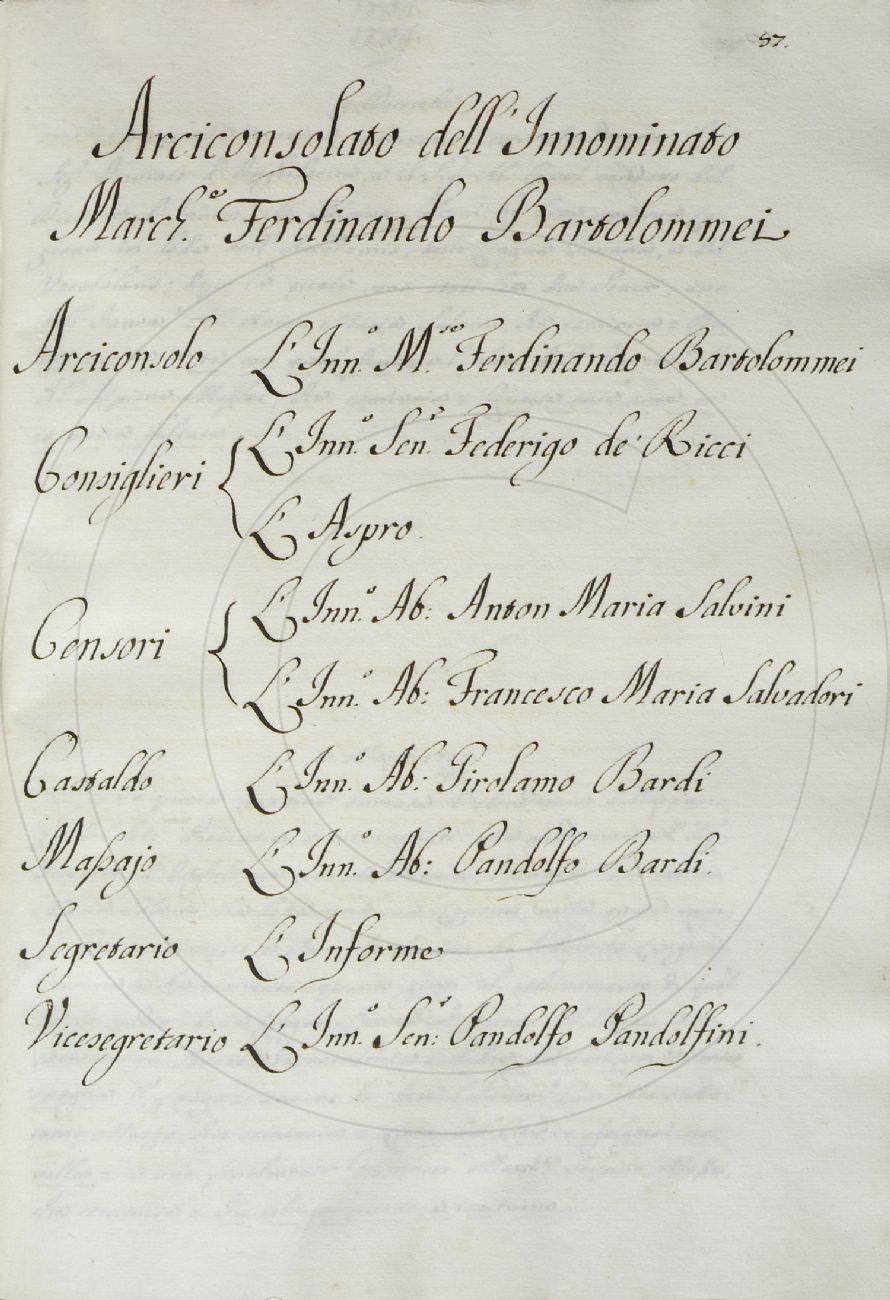 57.
Arciconsolato dell'Innominato
March.º Ferdinando Bartolommei
Arciconsolo L'Inn.º M.se Ferdinando Bartolommei
Consiglieri { L'Inn.º Sen.r Federigo de' Ricci
L'Aspro.
Censori { L'Inn.º Ab: Anton Maria Salvini
L'Inn.º Ab: Francesco Maria Salvadori
Castaldo L'Inn.º Ab: Girolamo Bardi
Massajo L'Inn.º Ab: Pandolfo Bardi.
Segretario L'Informe
Vicesegretario L'Inn.º Sen.r: Pandolfo Pandolfini.